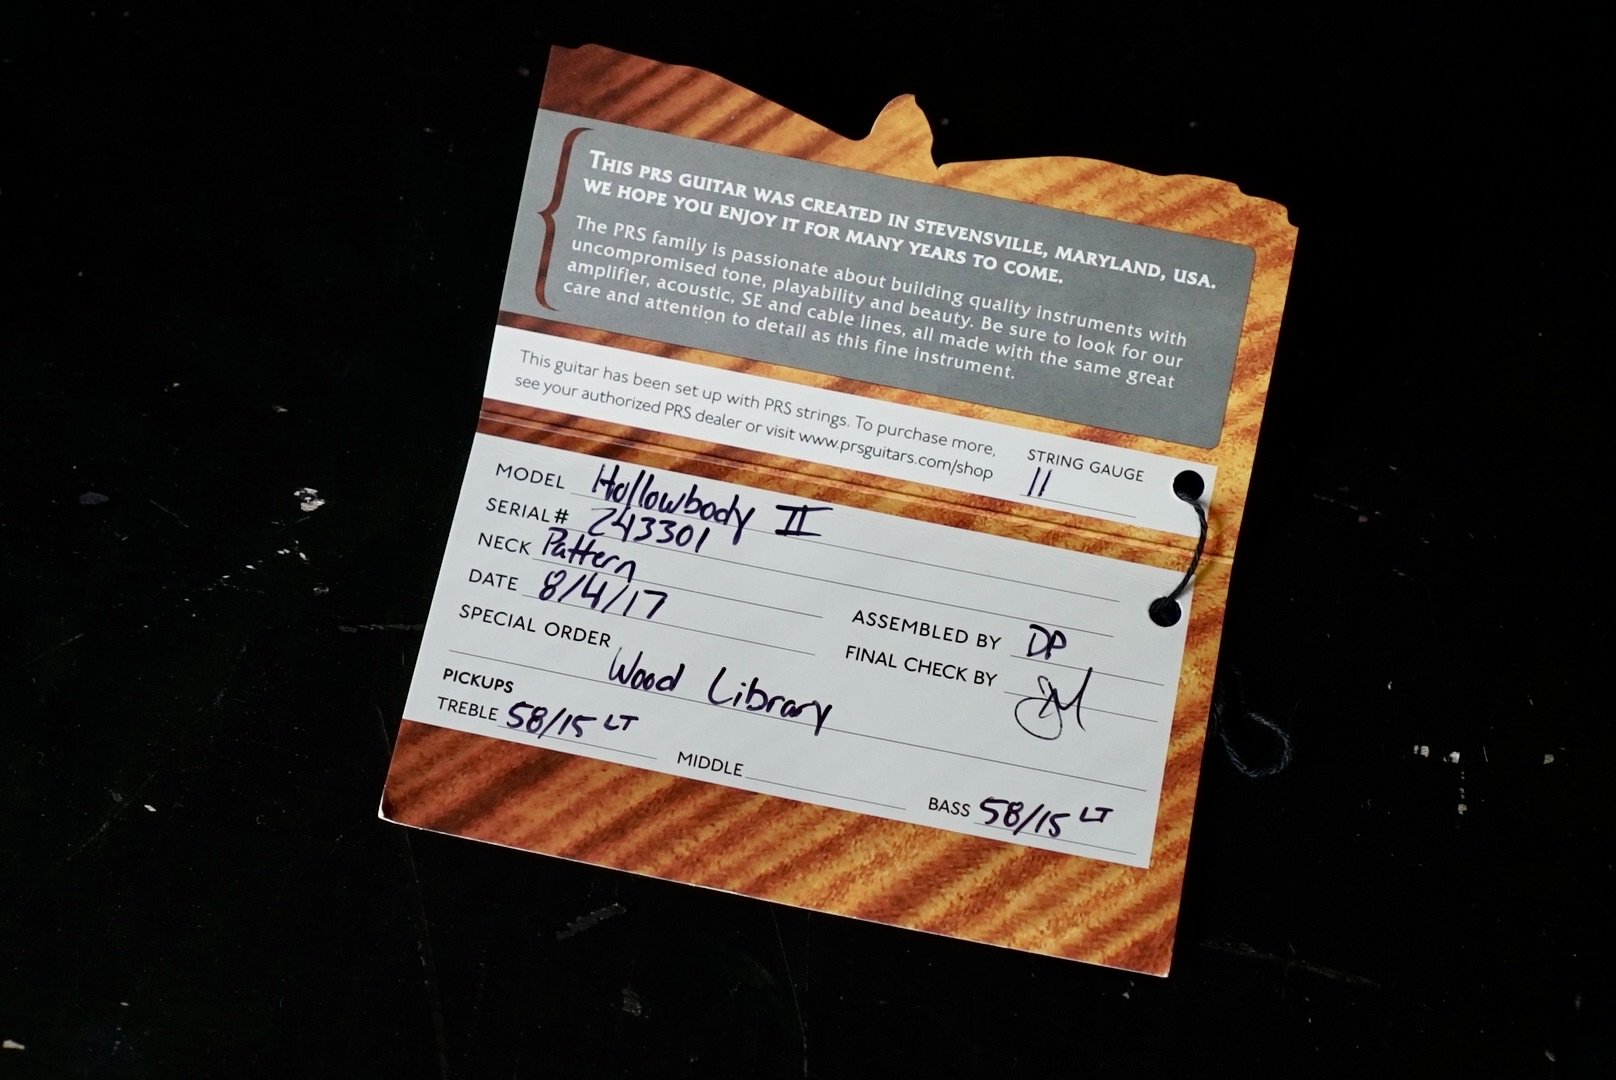 THIS PRS GUITAR WAS CREATED IN STEVENSVILLE, MARYLAND, USA.
WE HOPE YOU ENJOY IT FOR MANY YEARS TO COME.
The PRS family is passionate about building quality instruments with
uncompromised tone, playability and beauty. Be sure to look for our
amplifier, acoustic, SE and cable lines, all made with the same great
care and attention to detail as this fine instrument.
This guitar has been set up with PRS strings. To purchase more,
see your authorized PRS dealer or visit www.prsguitars.com/shop
STRING GAUGE
11
MODEL Hollowbody II
SERIAL# 243301
NECK Pattern
DATE 8/4/17
ASSEMBLED BY DP
FINAL CHECK BY
SPECIAL ORDER
Wood Library
PICKUPS
TREBLE 58/15 LT
MIDDLE
BASS 58/15 LT